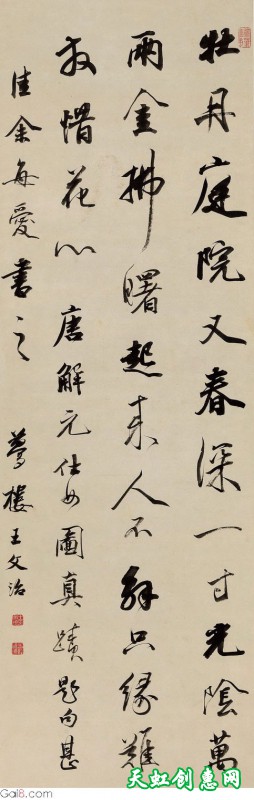 牡丹庭院又春深一寸光陰萬
兩金拂曙起來人不解只緣難
放惜花心 唐解元仕女圖真蹟題句甚
佳余每愛書之 夢樓王文治
Gal8.com
天虹创惠网